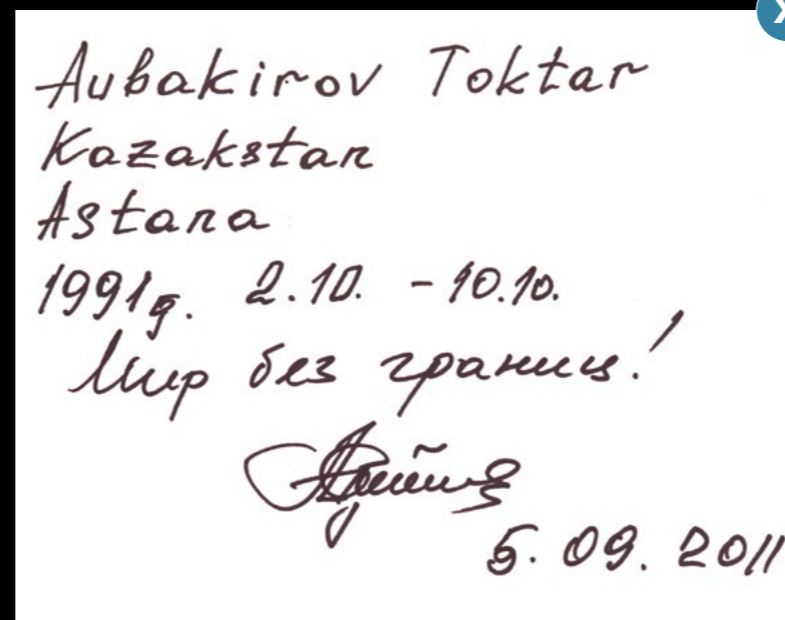 Aubakirov Toktar
Kazakstan
Astana
1991g. 2.10. - 10.10.
Мир без границ!
5. 09. 2011